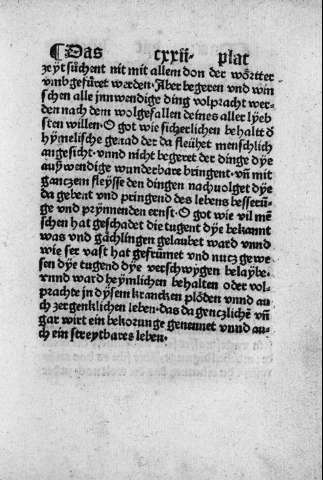 ¶Das cxxii· plat
zeyt süchent nit mit allem don der wörtter
vmbgefüret werden· Aber begeren vnd win
schen alle jnnwendige ding volpracht wer-
den nach dem wolgefallen deines aller lyeb
sten willen· O got wie sicherlichen behaltt d̄
hymelische genad der da fleühet menschlich
angesicht· vnnd nicht begeret der dinge dye
außwendige wunderbare bringent· vn̄ mit
ganczem fleysse den dingen nachuolget dye
da gebent vnd pringend des lebens besserū-
ge vnd prynnenden ernst· O got wie vil mē
schen hat geschadet die tugent dye bekannt
was vnd gächlingen gelaubet ward vnnd
wie ser vast hat gefrümet vnd nucz gewe-
sen dye tugend dye verschwygen belaybe·
vnnd ward heymlichen behalten oder vol-
prachte jn dysem krancken plöden vnnd au
ch zergenklichen leben· das da genczlichē vn̄
gar wirt ein bekorunge genennet vnnd au-
ch ein streytbares leben·